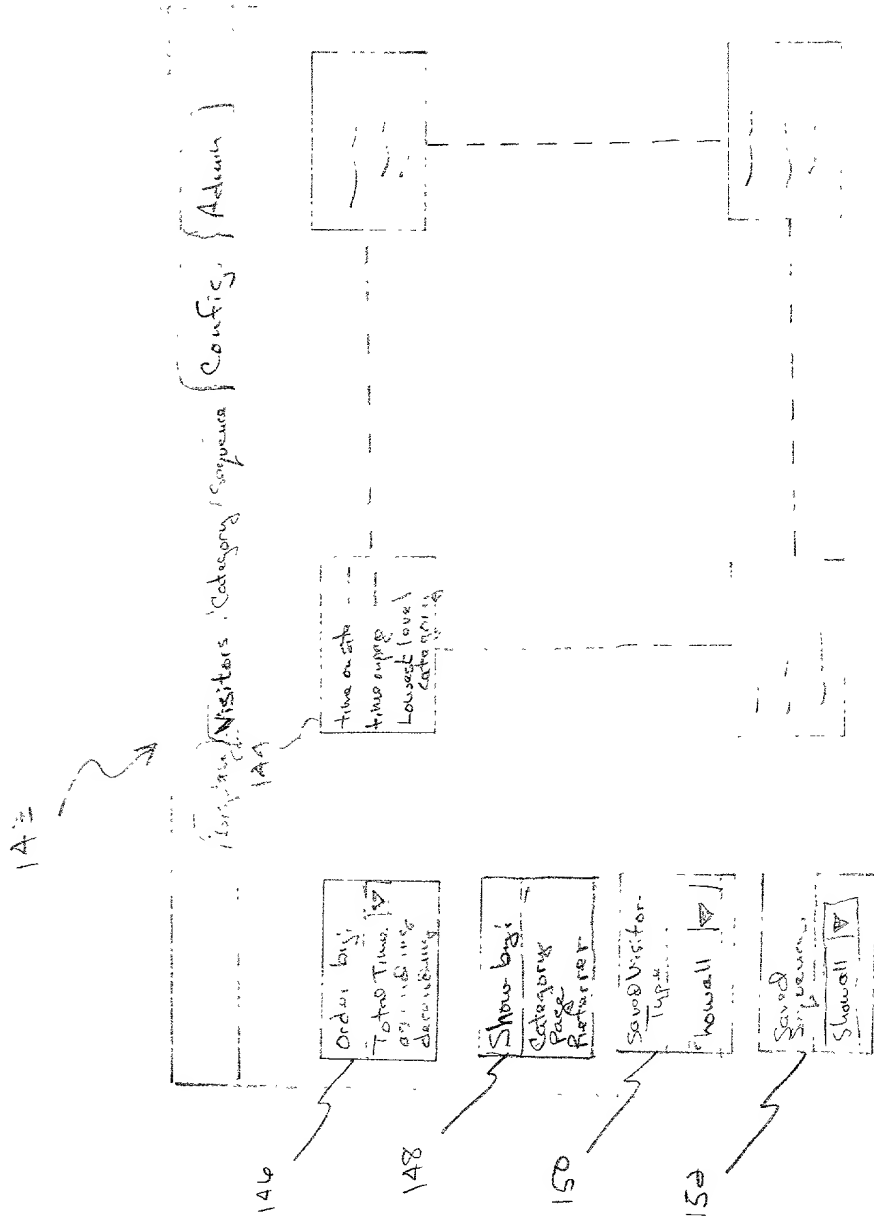 142
Visitors Category Sequence Config. Admin
144
time on site
time on page
Lowest level
category
146
Order by:
Total Time
ascending
descending
148
Show by:
Category
Page
Referrer
150
Saved Visitor
Type
Showall
152
Saved
Sequences
Showall